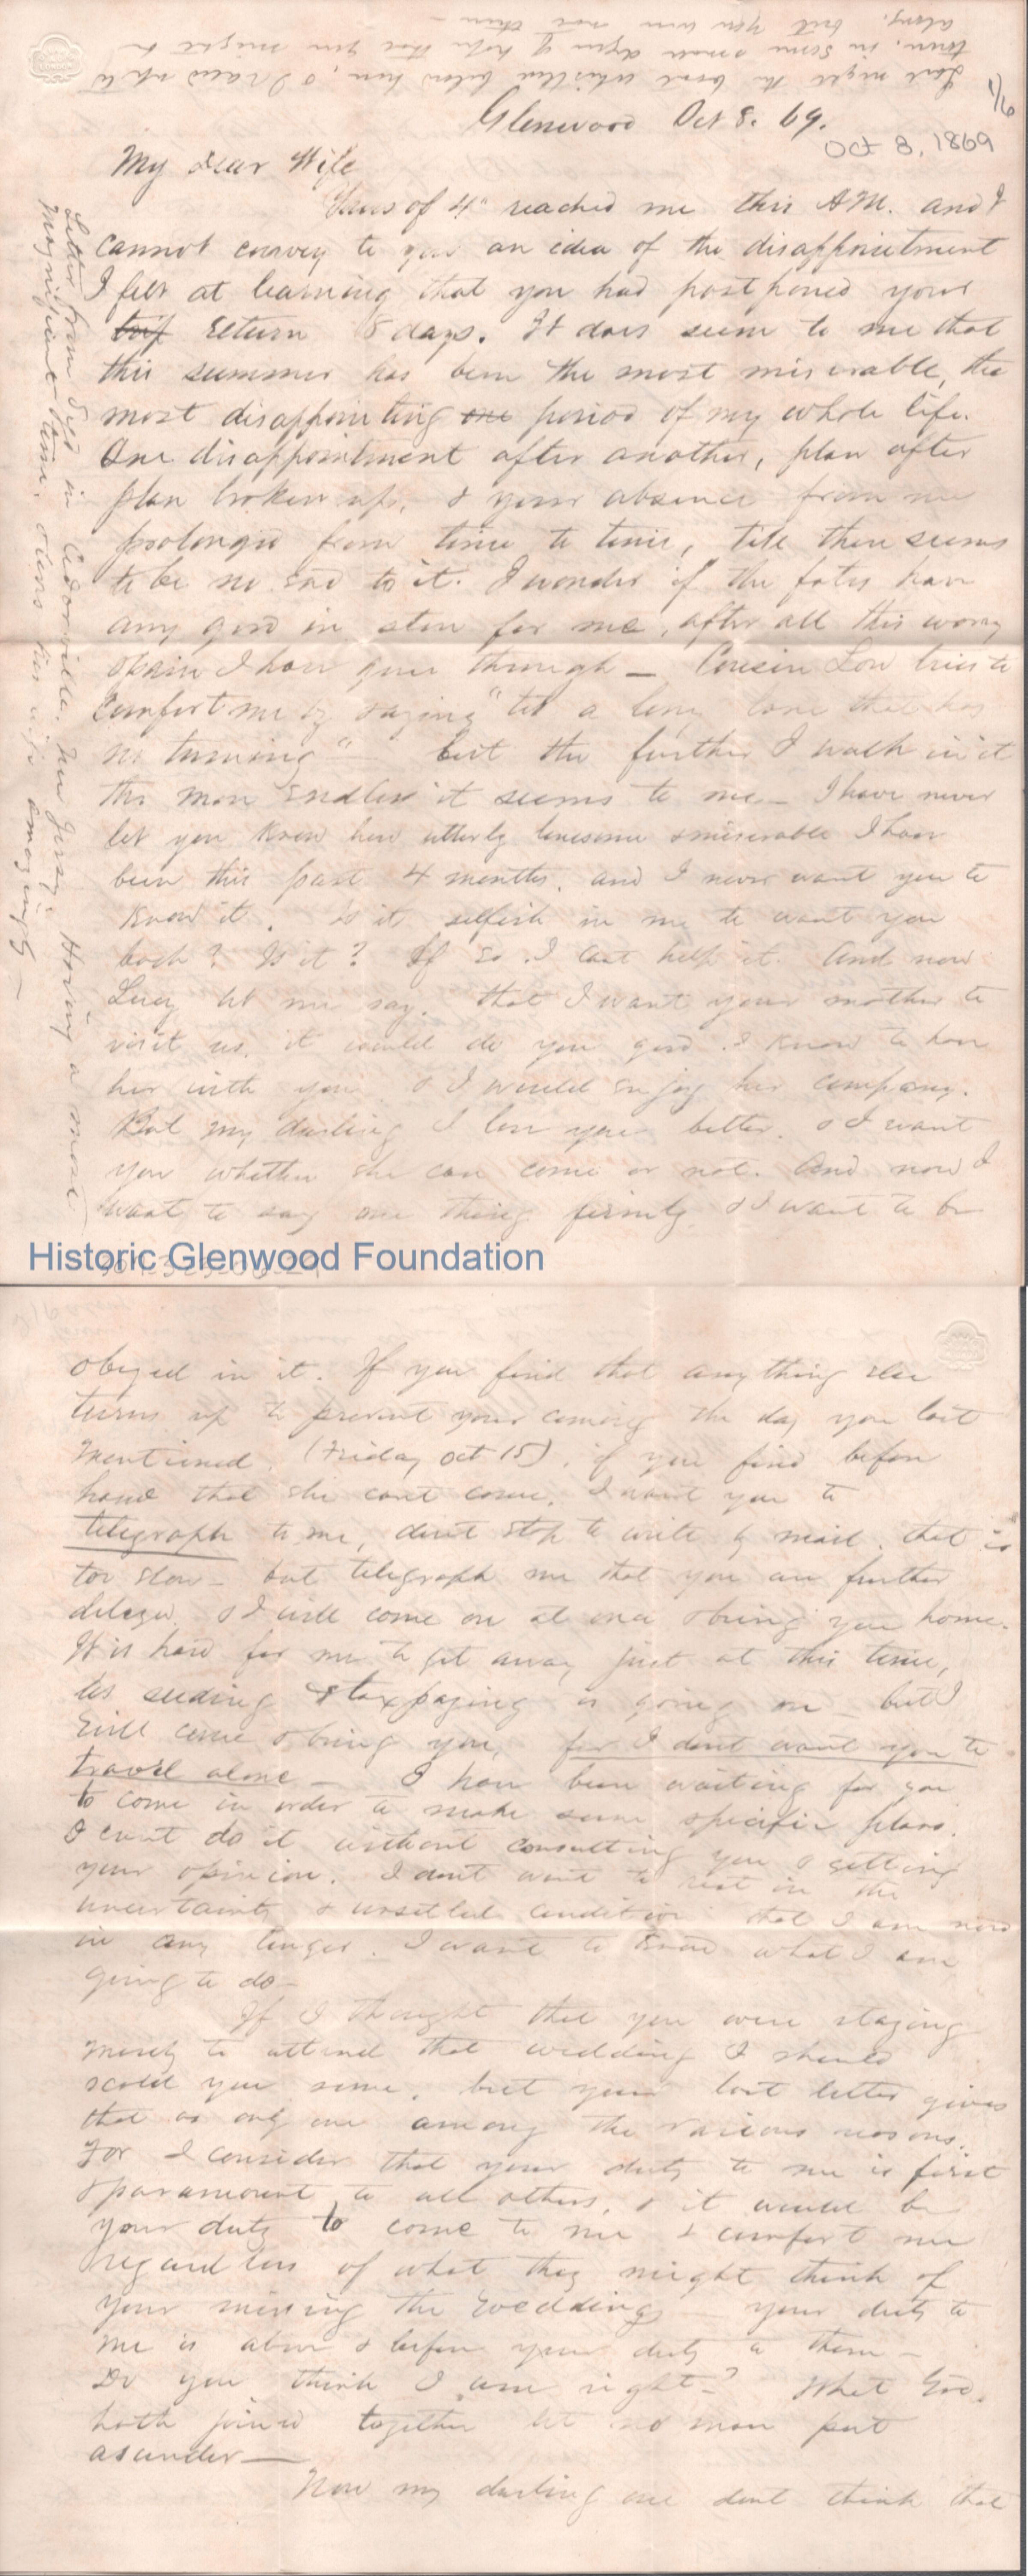 Last night the boat whistled below here, & I raced up to
town, in some small dying of hope that you might be
along, but you were not there —
1/6
Glenwood Oct 8. 69.
Oct 8, 1869
My Dear Wife
Yours of 4" reached me this A.M. and I
cannot convey to you an idea of the disappointment
I felt at learning that you had postponed your
trip return 8 days. It does seem to me that
this summer has been the most miserable, the
most disappointing one period of my whole life.
One disappointment after another, plan after
plan broken up, & your absence from me
prolonged from time to time, till there seems
to be no end to it. I wonder if the fates have
any good in store for me, after all this worry
& pain I have gone through — Cousin Lou tries to
comfort me by saying "tis a long lane that has
no turning" — but the further I walk in it
the more endless it seems to me — I have never
let you know how utterly lonesome & miserable I have
been this past 4 months, and I never want you to
know it. Is it selfish in me to want you
back? Is it? If so I cant help it. And now
Lucy let me say, that I want your mother to
visit us, it would do you good I know to have
her with you & I would enjoy her company.
But my darling I love you better, & I want
you whether she can come or not. And now I
want to say one thing firmly & I want to be
Letter from in Cedarville, New Jersey Having a most
magnificent time. & likes his wife amazingly —
Historic Glenwood Foundation
obeyed in it. If you find that anything else
turns up to prevent your coming the day you last
mentioned, (Friday Oct 15), if you find before
hand that she cant come, I want you to
telegraph to me, dont stop to write by mail, that is
too slow — but telegraph me that you are further
delayed & I will come on at once & bring you home.
It is hard for me to get away just at this time,
as seeding & taxpaying is going on — but I
will come & bring you, for I dont want you to
travel alone — I have been waiting for you
to come in order to make some specific plans.
I cant do it without consulting you & getting
your opinion. I dont want to rest in the
uncertainty & unsettled condition that I am now
in any longer. I want to know what I am
going to do —
If I thought that you were staying
merely to attend that wedding I should
scold you some, but your last letter gives
that as only one among the various reasons.
For I consider that your duty to me is first
& paramount to all others, & it would be
your duty to come to me & comfort me
regardless of what they might think of
your missing the wedding — your duty to
me is above & before your duty to them —
Do you think I am right? What God
hath joined together let no man put
asunder —
Now my darling one dont think that